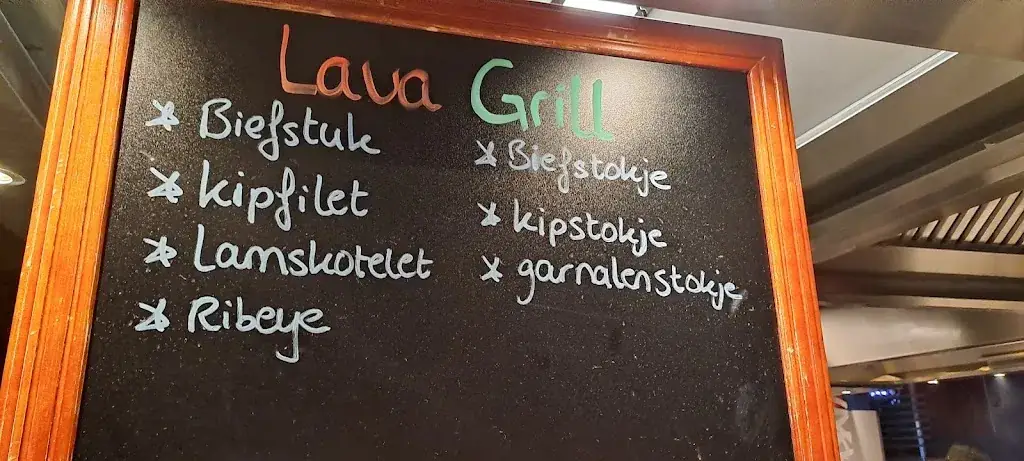 Lava Grill
* Biefstuk
* kipfilet
* Lamskotelet
* Ribeye
* Biefstokje
* kipstokje
* garnalenstokje